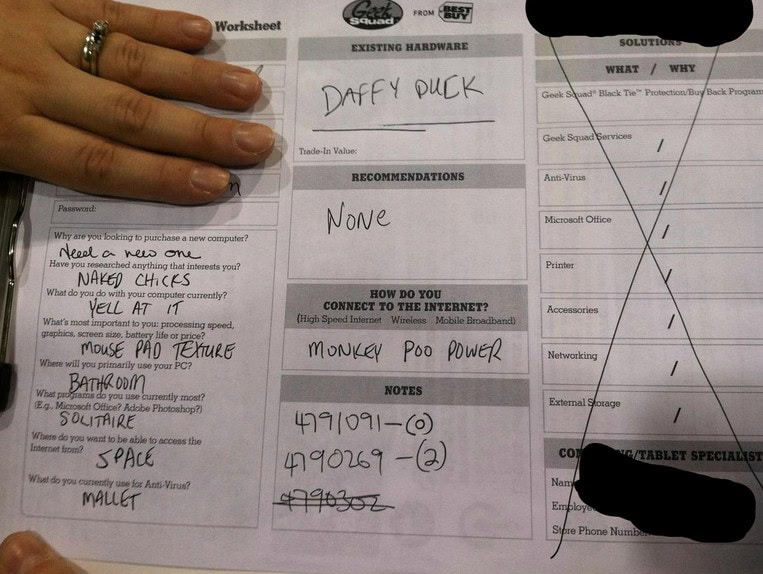 Worksheet
Geek Squad FROM BEST BUY
Password:
Why are you looking to purchase a new computer?
Need a new one
Have you researched anything that interests you?
NAKED CHICKS
What do you do with your computer currently?
YELL AT IT
What's most important to you: processing speed,
graphics, screen size, battery life or price?
MOUSE PAD TEXTURE
Where will you primarily use your PC?
BATHROOM
What programs do you use currently most?
(E.g., Microsoft Office? Adobe Photoshop?)
SOLITAIRE
Where do you want to be able to access the
Internet from?
SPACE
What do you currently use for Anti-Virus?
MALLET
EXISTING HARDWARE
DAFFY DUCK
Trade-In Value:
RECOMMENDATIONS
NONE
HOW DO YOU
CONNECT TO THE INTERNET?
(High Speed Internet Wireless Mobile Broadband)
MONKEY POO POWER
NOTES
4791091-(0)
4790269-(2)
4790302
SOLUTIONS
WHAT / WHY
Geek Squad® Black Tie™ Protection/Buy Back Program
Geek Squad Services
/
Anti-Virus
/
Microsoft Office
/
Printer
/
Accessories
/
Networking
/
External Storage
/
G/TABLET SPECIALIST
Store Phone Number